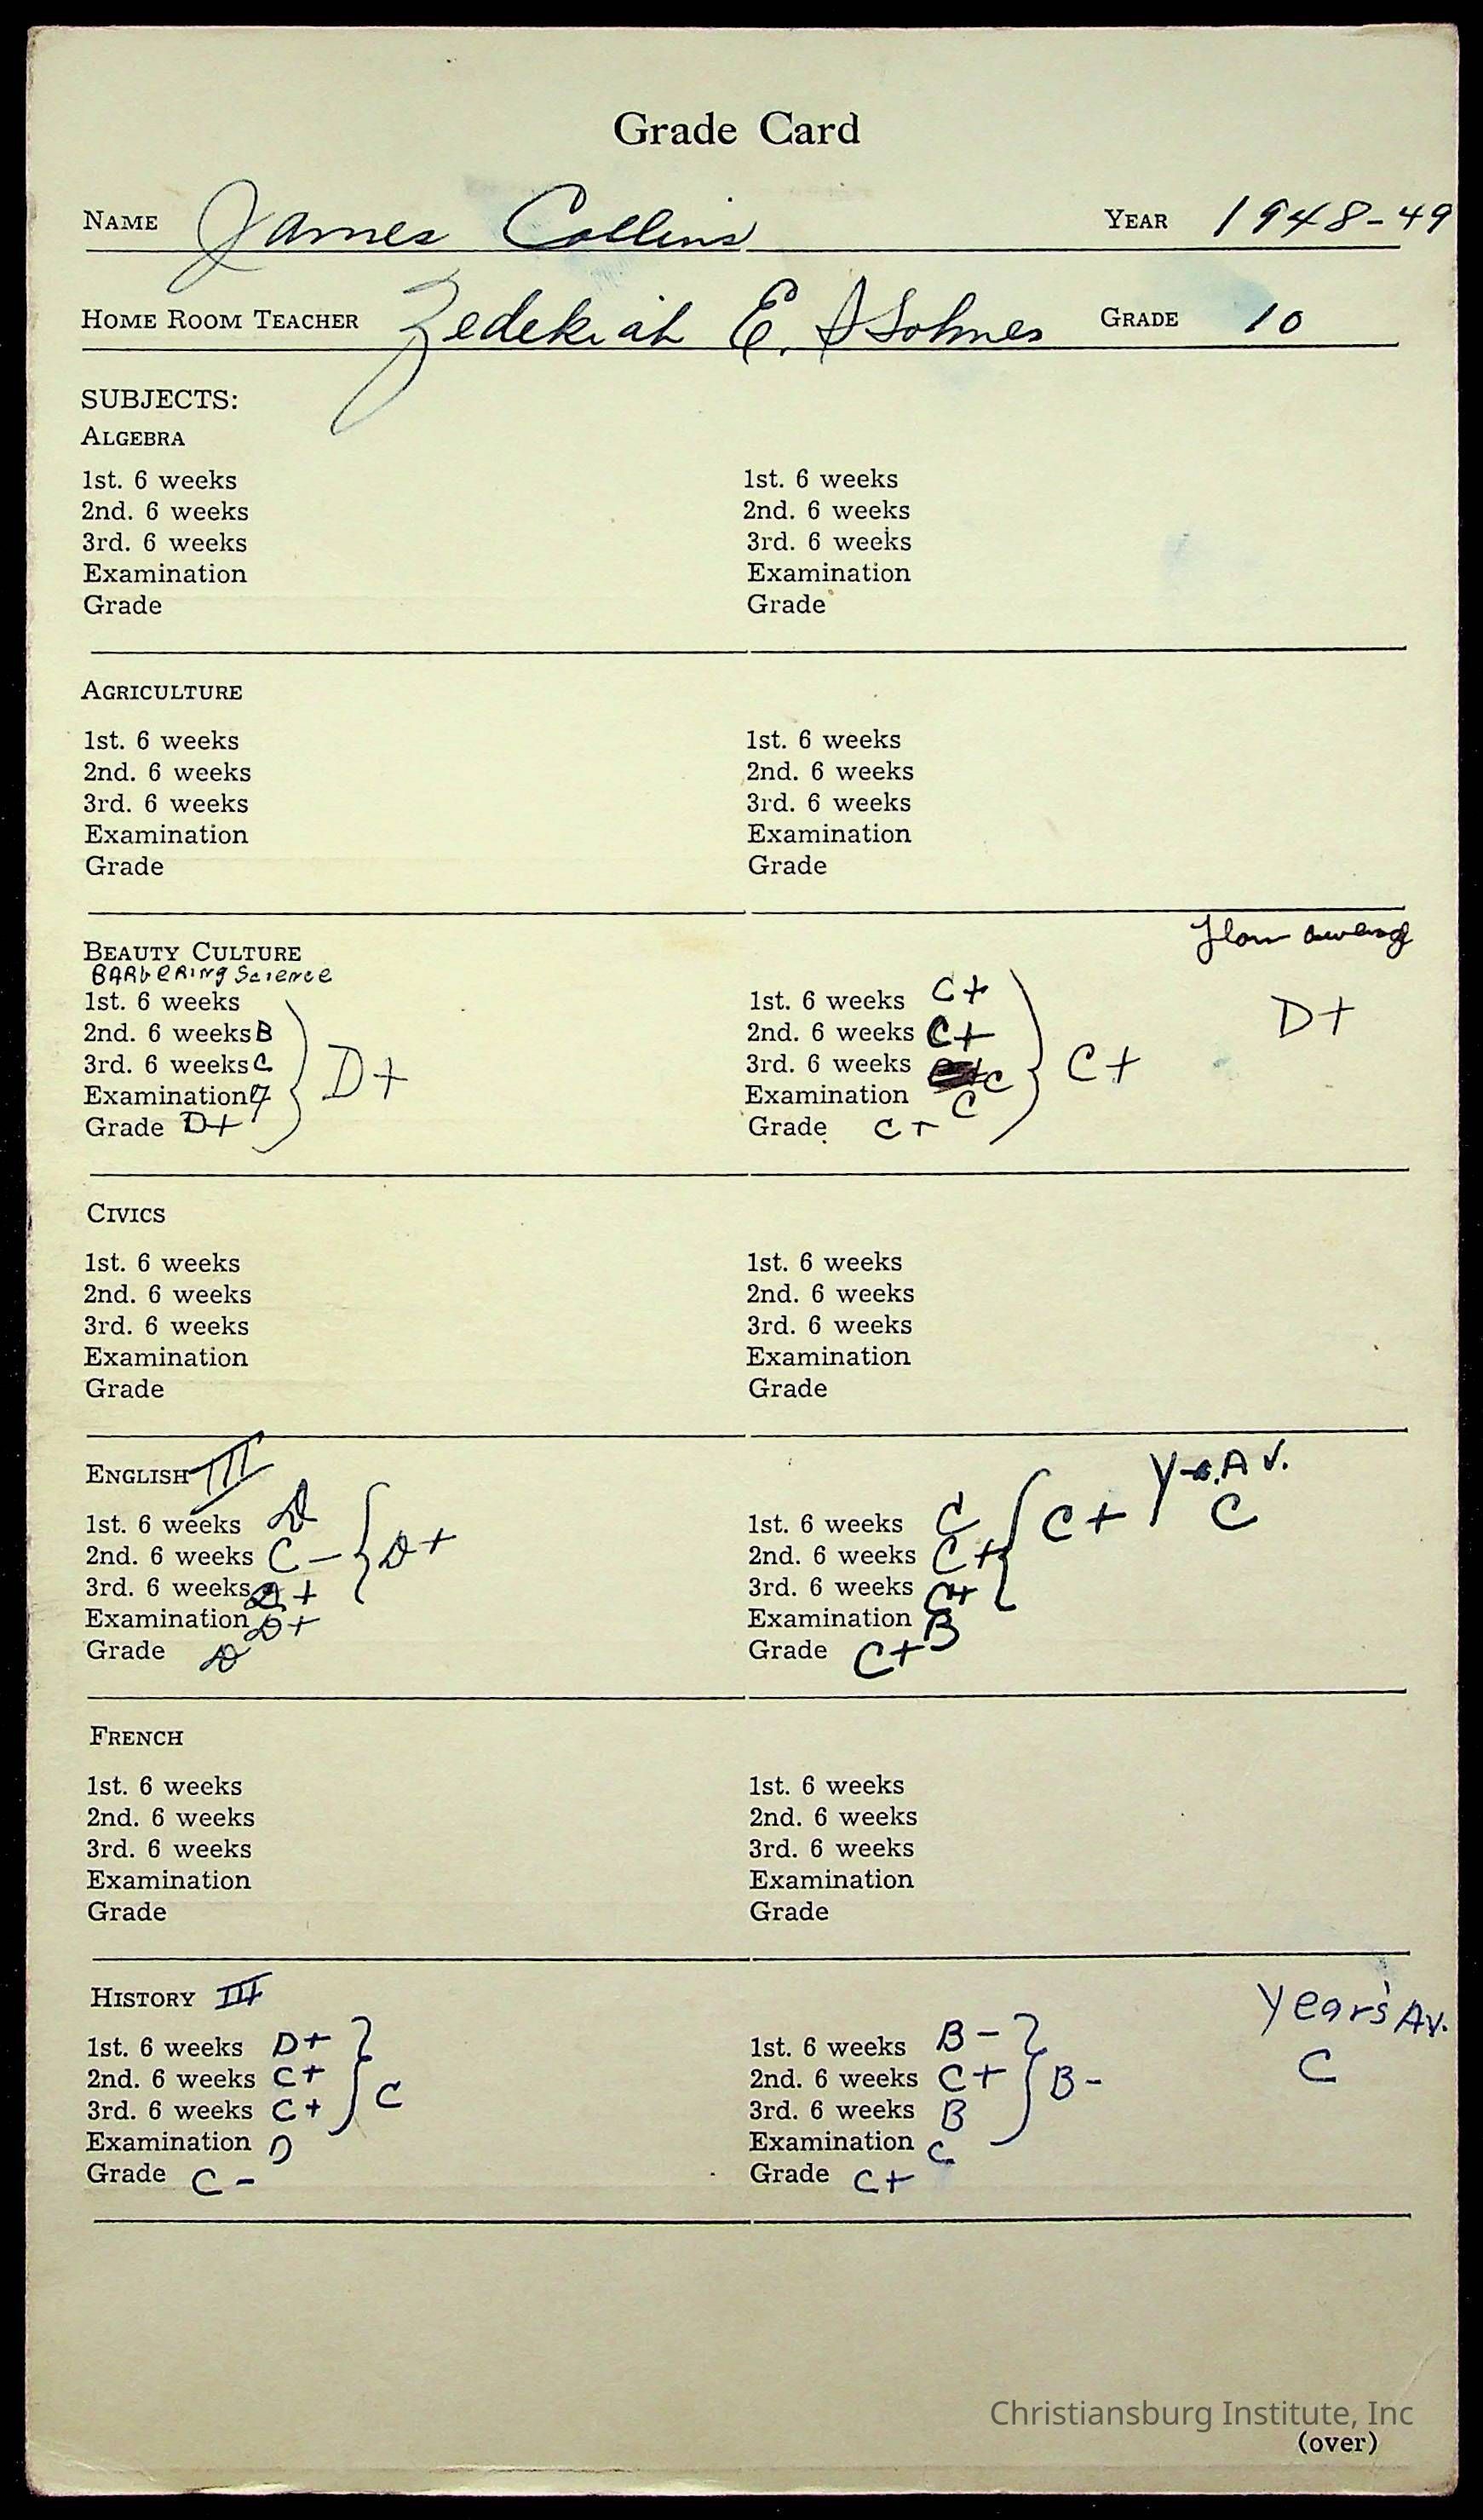 Grade Card
NAME James Collins YEAR 1948-49
HOME ROOM TEACHER Zedekiah E. Holmes GRADE 10
SUBJECTS:
ALGEBRA
1st. 6 weeks 1st. 6 weeks
2nd. 6 weeks 2nd. 6 weeks
3rd. 6 weeks 3rd. 6 weeks
Examination Examination
Grade Grade
AGRICULTURE
1st. 6 weeks 1st. 6 weeks
2nd. 6 weeks 2nd. 6 weeks
3rd. 6 weeks 3rd. 6 weeks
Examination Examination
Grade Grade
BEAUTY CULTURE
BARbERINg Science
1st. 6 weeks 1st. 6 weeks C+ D+
2nd. 6 weeks B 2nd. 6 weeks C+
3rd. 6 weeks C D+ 3rd. 6 weeks C C+
Examination Examination C
Grade D+ Grade C+
CIVICS
1st. 6 weeks 1st. 6 weeks
2nd. 6 weeks 2nd. 6 weeks
3rd. 6 weeks 3rd. 6 weeks
Examination Examination
Grade Grade
ENGLISH III Av.
1st. 6 weeks D 1st. 6 weeks C C+ C
2nd. 6 weeks C- D+ 2nd. 6 weeks C+
3rd. 6 weeks D+ 3rd. 6 weeks C+
Examination D+ Examination B
Grade D Grade C+
FRENCH
1st. 6 weeks 1st. 6 weeks
2nd. 6 weeks 2nd. 6 weeks
3rd. 6 weeks 3rd. 6 weeks
Examination Examination
Grade Grade
HISTORY III Year's Av.
1st. 6 weeks D+ 1st. 6 weeks B- C
2nd. 6 weeks C+ C 2nd. 6 weeks C+ B-
3rd. 6 weeks C+ 3rd. 6 weeks B
Examination D Examination C
Grade C- Grade C+
Christiansburg Institute, Inc
(over)